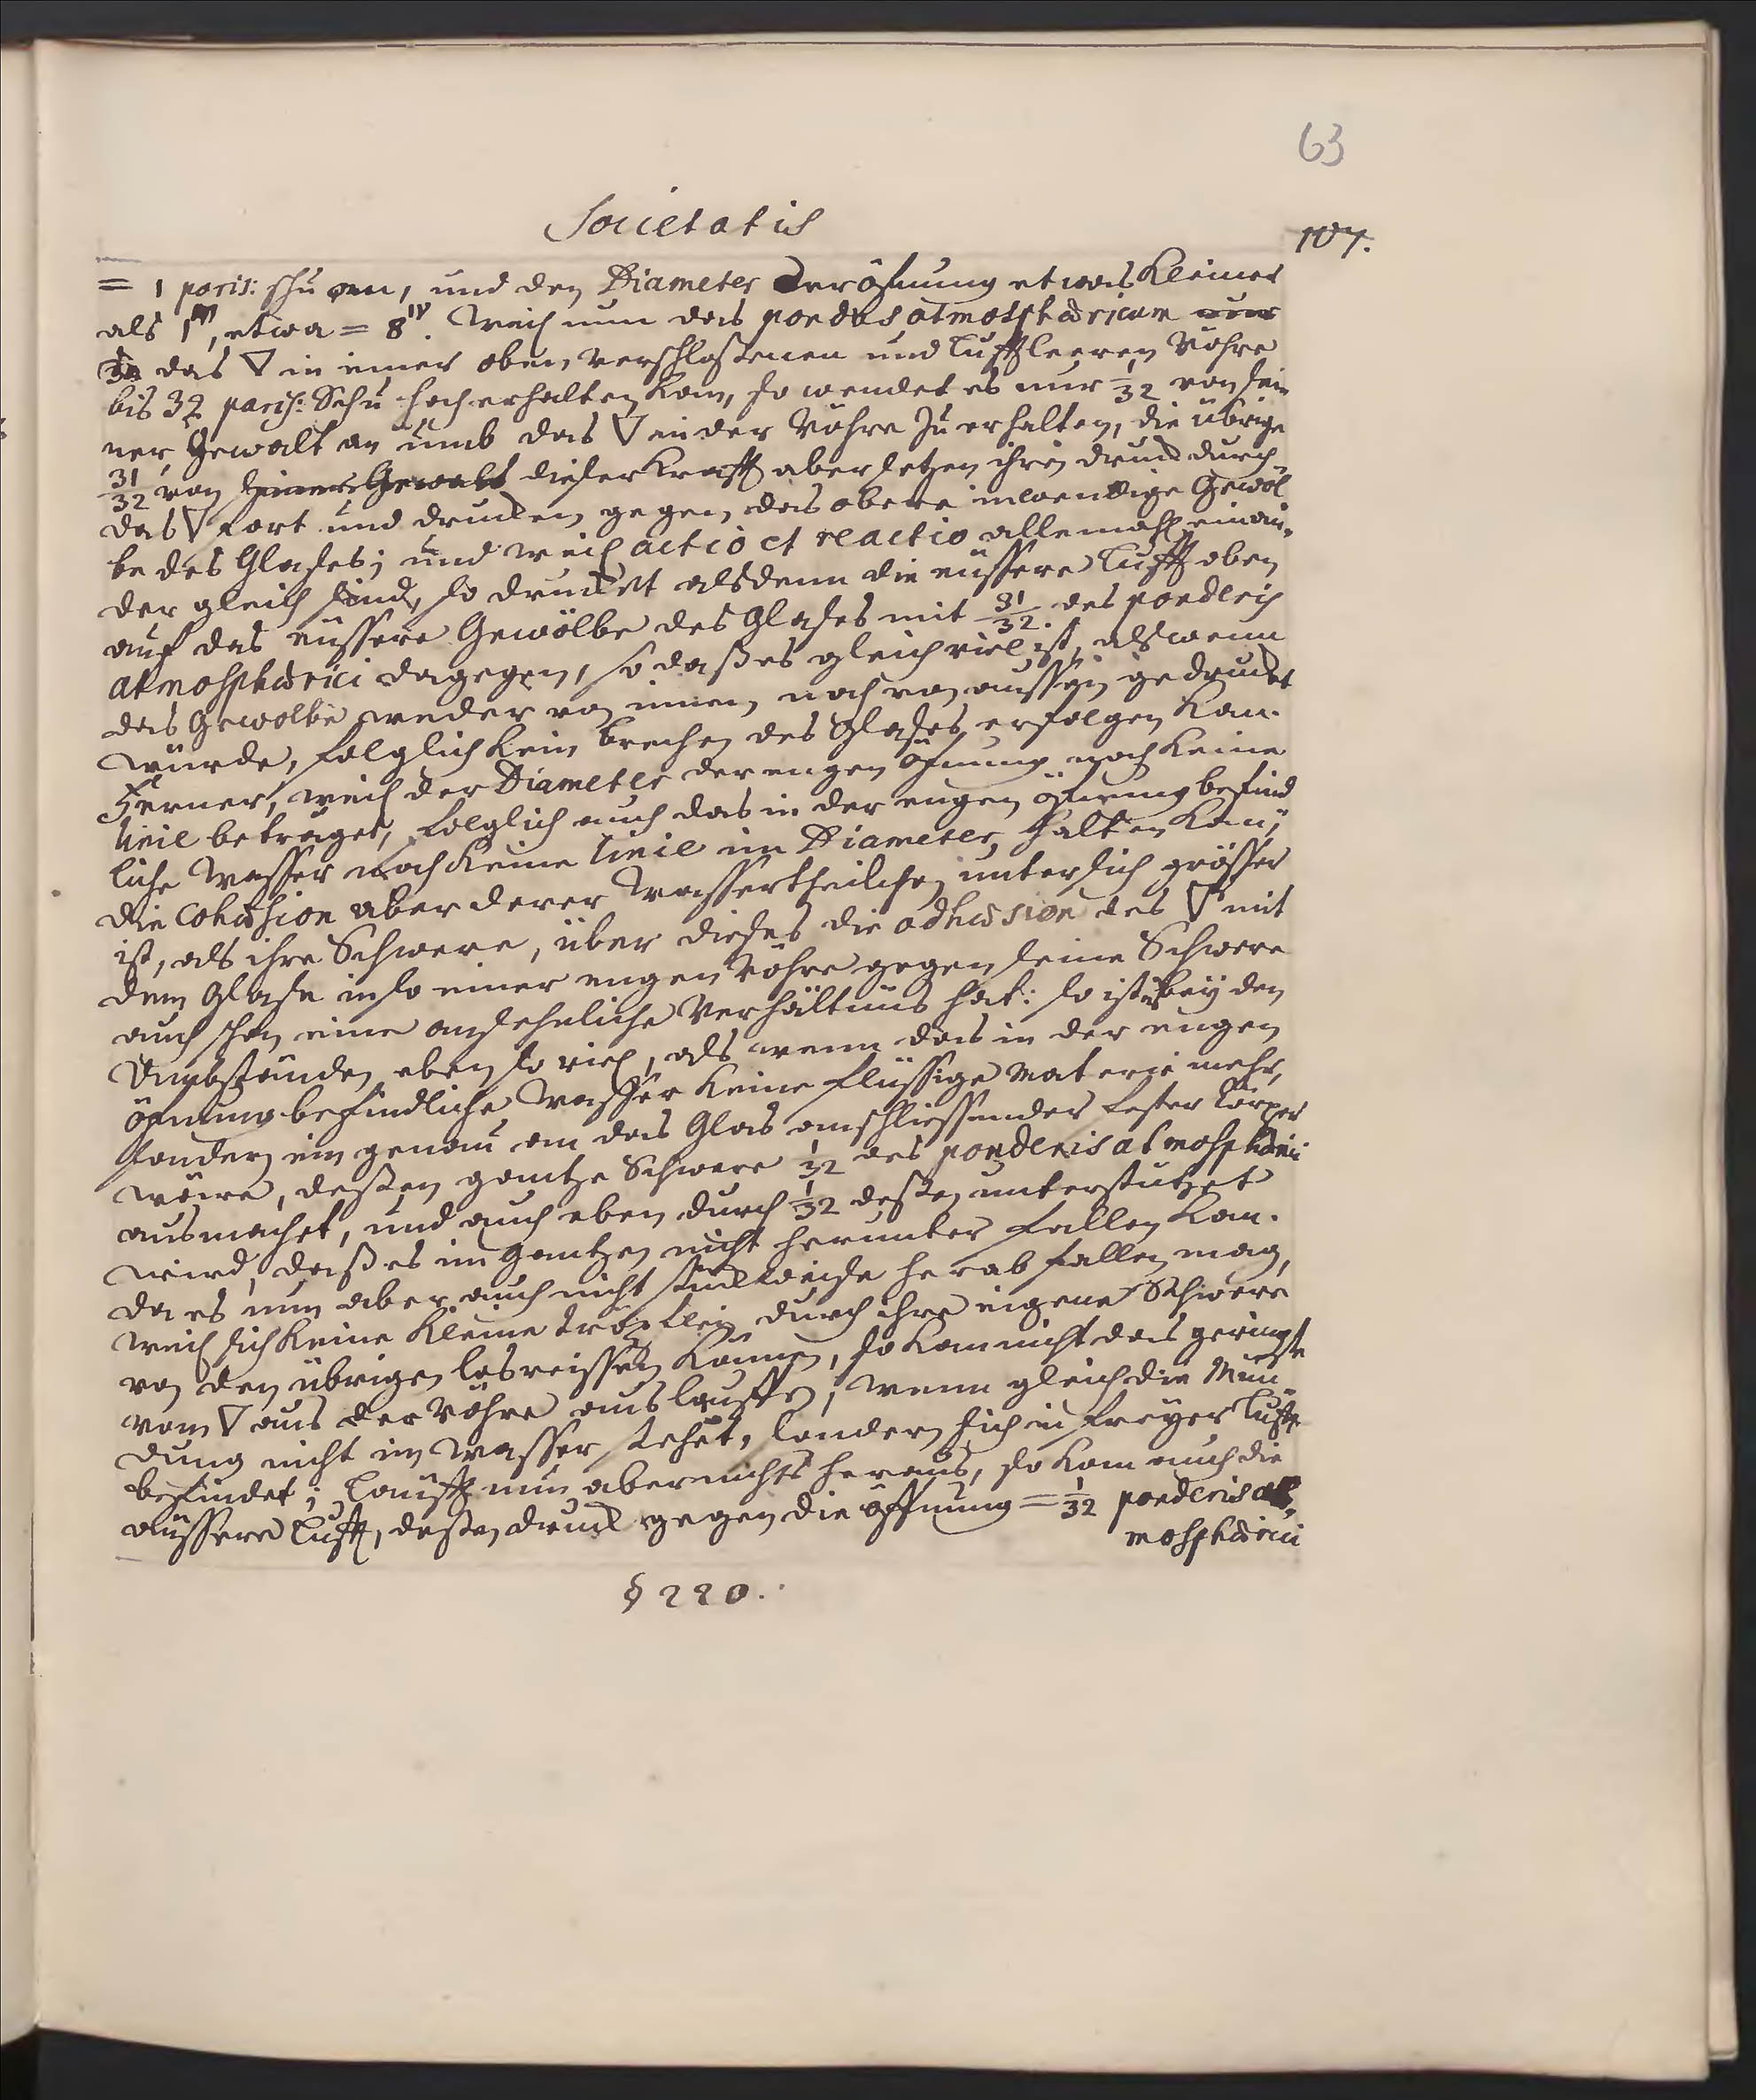 63
Societatis
107.
= 1 paris: schu an, und den Diameter der öfnung etwas kleiner
als 1''', etwa = 8ⁱᵛ. Weil nun das pondus atmosphæricum
das ▽ in einer oben verschloßenen und lufftleeren Röhre
bis 32 paris: Schu hoch erhalten kan, so wendet es nur 1/32 von sei-
ner Gewalt an umb das ▽ in der Röhre zu erhalten, die übrige
31/32 von seiner Gewalt dieser Krafft aber setzen ihren druck durch
das ▽ fort und drucken gegen das obere inwendige Gewöl-
be des Glases; und weil actio et reactio allemahl einan-
der gleich sind, so drucket alsdenn die eüssere Lufft oben
auf das eüssere Gewölbe des Glases mit 31/32. des ponderis
atmosphærici dagegen, so daß es gleich viel ist, als wenn
das Gewölbe weder von innen noch von aussen gedruckt
würde, folglich kein brechen des Glases erfolgen kan.
Ferner, weil der Diameter der engen öfnung noch keine
Linie beträget, folglich auch das in der engen öfnung befind
liche Wasser noch keine Linie im Diameter halten kan;
die Cohæsion aber derer Wassertheilchen unter sich grösser
ist, als ihre Schwere, über dieses die adhæsion des ▽ mit
dem Glase in so einer engen Röhre gegen seine Schwere
auch schon eine ansehnliche Verhältnus hat: so ist es bey den
Umbständen eben so viel, als wenn das in der engen
öfnung befindliche Wasser keine flüssige Materie mehr,
sondern ein genau an das Glas anschliessender fester Cörper
wäre, deßen gantze Schwere 1/32 des ponderis atmosphærici
ausmachet, und auch eben durch 1/32 deßen unterstützet
wird, daß es im gantzen nicht herunter fallen kan.
da es nun aber auch nicht stückweise herab fallen mag,
weil sich keine kleine tröpflein durch ihre eigene Schwere
von den übrigen losreissen können, so kan nicht das geringste
vom ▽ aus der Röhre auslauffen, wenn gleich die Mün-
dung nicht im Wasser stehet, sondern sich in freyer Lufft
befindet; Laufft nun aber nichts heraus, so kan auch die
äüssere Lufft, deßen druck gegen die öffnung = 1/32 ponderis at-
mosphærici
§ 220.